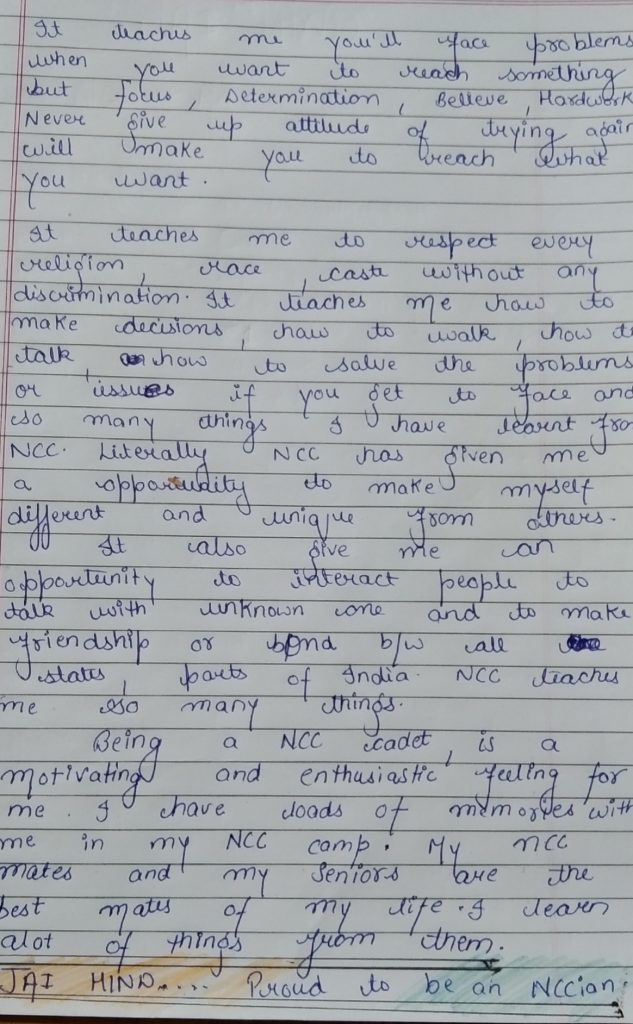 It teaches me you'll face problems
when you want to reach something
but focus, Determination, Believe, Hardwork
Never give up attitude of trying again
will make you to reach what
you want.
It teaches me to respect every
religion, race, caste without any
discrimination. It teaches me how to
make decisions, how to walk, how to
talk, how to solve the problems
or issues if you get to face and
so many things I have learnt from
NCC. Literally NCC has given me
a opportunity to make myself
different and unique from others.
It also give me an
opportunity to interact people to
talk with unknown one and to make
friendship or bond b/w all
states, parts of India. NCC teaches
me so many things.
Being a NCC cadet, is a
motivating and enthusiastic feeling for
me. I have loads of memories with
me in my NCC camp. My ncc
mates and my seniors are the
best mates of my life. I learn
alot of things from them.
JAI HIND..... Proud to be an NCCian.